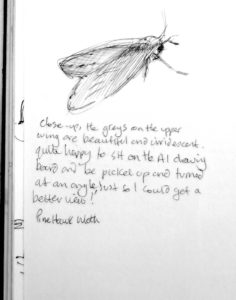 Close-up, the greys on the upper
wing are beautiful and irridescent.
quite happy to sit on the A1 drawing
board and be picked up and turned
at an angle, just so I could get a
better view!
Pine Hawk Moth